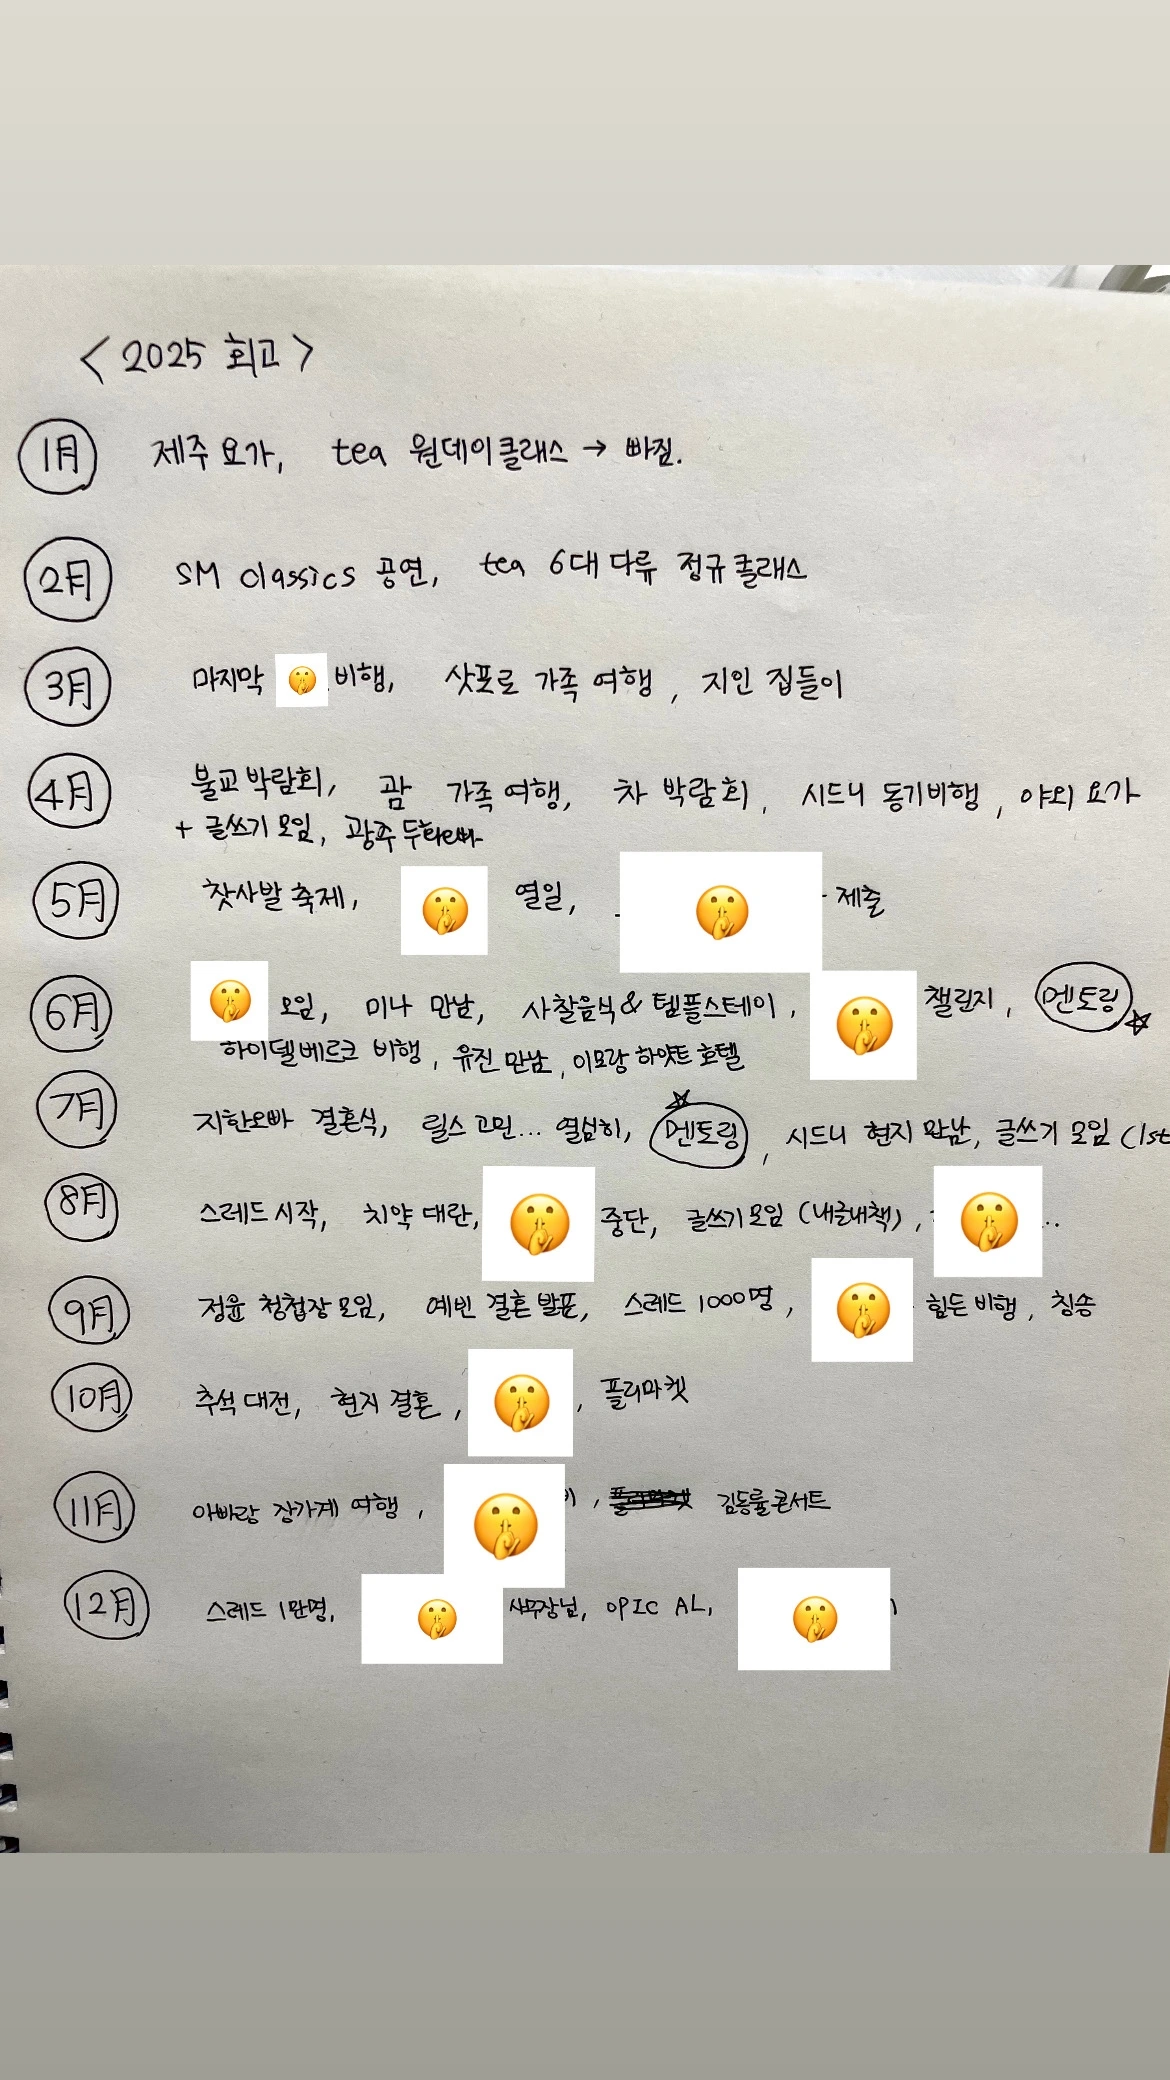 < 2025 회고 >
1月 제주 요가, tea 원데이클래스 → 빠짐.
2月 SM classics 공연, tea 6대 다류 정규클래스
3月 마지막 비행, 삿포로 가족 여행, 지인 집들이
4月 불교박람회, 괌 가족여행, 차 박람회, 시드니 동기비행, 야외 요가
+ 글쓰기 모임, 광주
5月 찻사발 축제, 열일, 제출
6月 모임, 미나 만남, 사찰음식 & 템플스테이, 챌린지, 멘토링
하이델베르크 비행, 유진 만남, 이모랑 하얏트 호텔
7月 지한오빠 결혼식, 릴스 고민... 열심히, 멘토링, 시드니 현지 만남, 글쓰기 모임 (1st
8月 스레드 시작, 치약 대란, 중단, 글쓰기모임 (내글내책),
9月 정윤 청첩장 모임, 예빈 결혼 발표, 스레드 1000명, 힘든 비행, 칭송
10月 추석 대전, 현지 결혼, , 플리마켓
11月 아빠랑 장가계 여행, , 김동률콘서트
12月 스레드 1만명, 사무장님, OPIC AL,